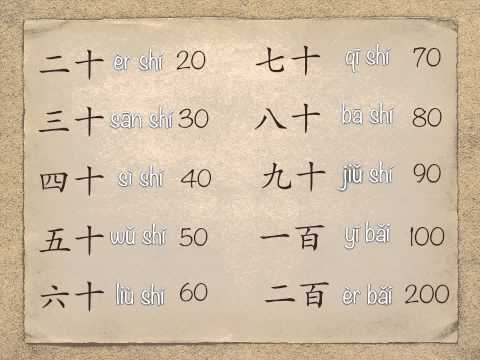 二十 èr shí 20
三十 sān shí 30
四十 sì shí 40
五十 wǔ shí 50
六十 liù shí 60
七十 qī shí 70
八十 bā shí 80
九十 jiǔ shí 90
一百 yī bǎi 100
二百 èr bǎi 200